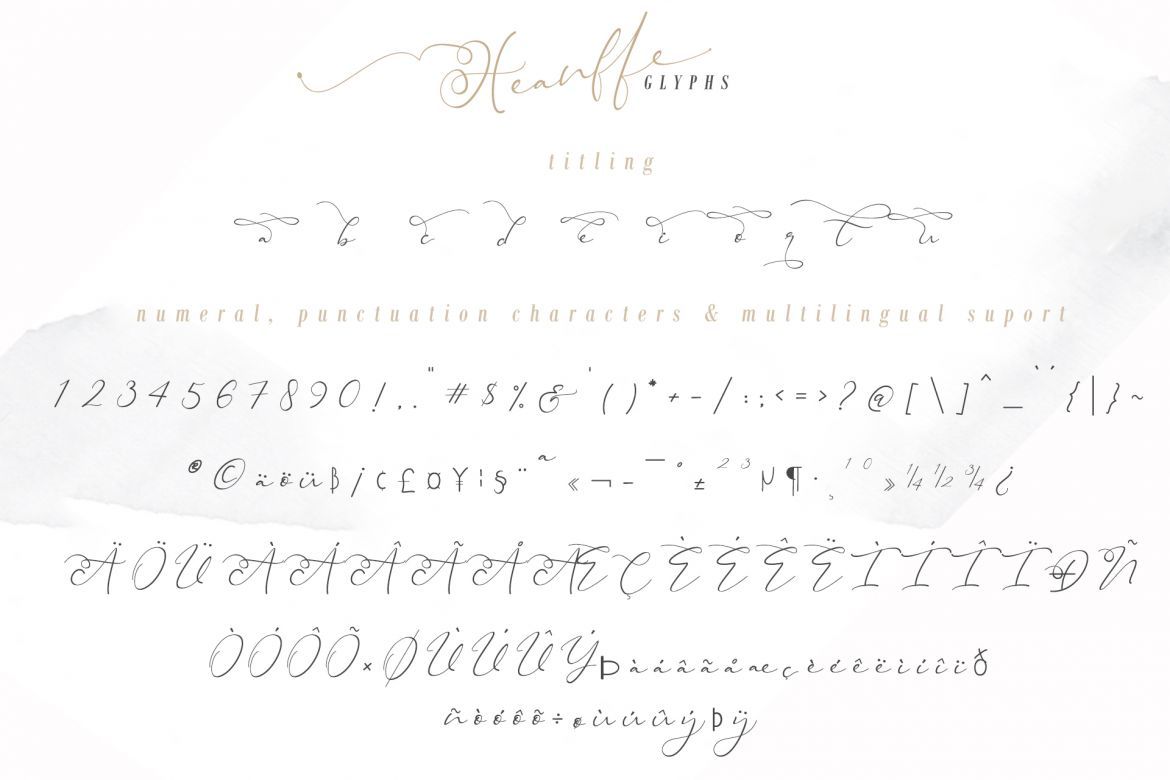 Heanffe GLYPHS
titling
a b c d e i o q t u
numeral, punctuation characters & multilingual suport
1 2 3 4 5 6 7 8 9 0 ! , . " # $ % & ' ( ) * + - / : ; < = > ? @ [ \ ] ^ _ ` ` { | } ~
® © ä ö ü ß ¡ ¢ £ ¤ ¥ ¦ § ¨ ª « ¬ - ¯ ° ± ² ³ µ ¶ · ¸ ¹ º » ¼ ½ ¾ ¿
Ä Ö Ü À Á Â Ã Å Æ Ç È É Ê Ë Ì Í Î Ï Ð Ñ
Ò Ó Ô Õ × Ø Ù Ú Û Ý Þ à á â ã å æ ç è é ê ë ì í î ï ð
ñ ò ó ô õ ÷ ø ù ú û ý þ ÿ